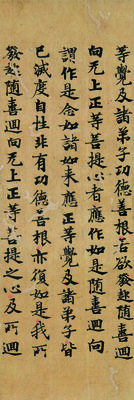 等覺及諸弟子功德善根若欲發起隨喜
向无上正等菩提心者應作如是隨喜迴向
謂作是念如諸如來應正等覺及諸弟子皆
已滅度自性非有功德善根亦復如是我所
發起隨喜迴向无上正等菩提之心及所迴